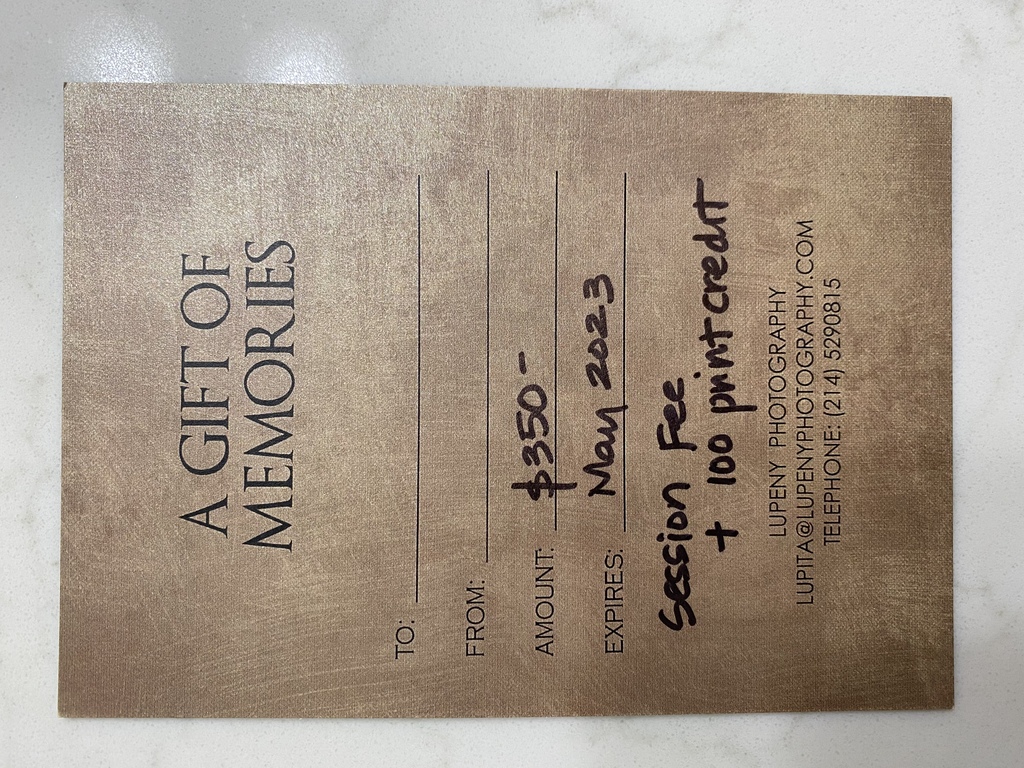 A GIFT OF
MEMORIES
TO:
FROM:
AMOUNT: $350-
EXPIRES: May 2023
Session Fee
+ 100 print credit
LUPENY PHOTOGRAPHY
LUPITA@LUPENYPHOTOGRAPHY.COM
TELEPHONE: (214) 5290815